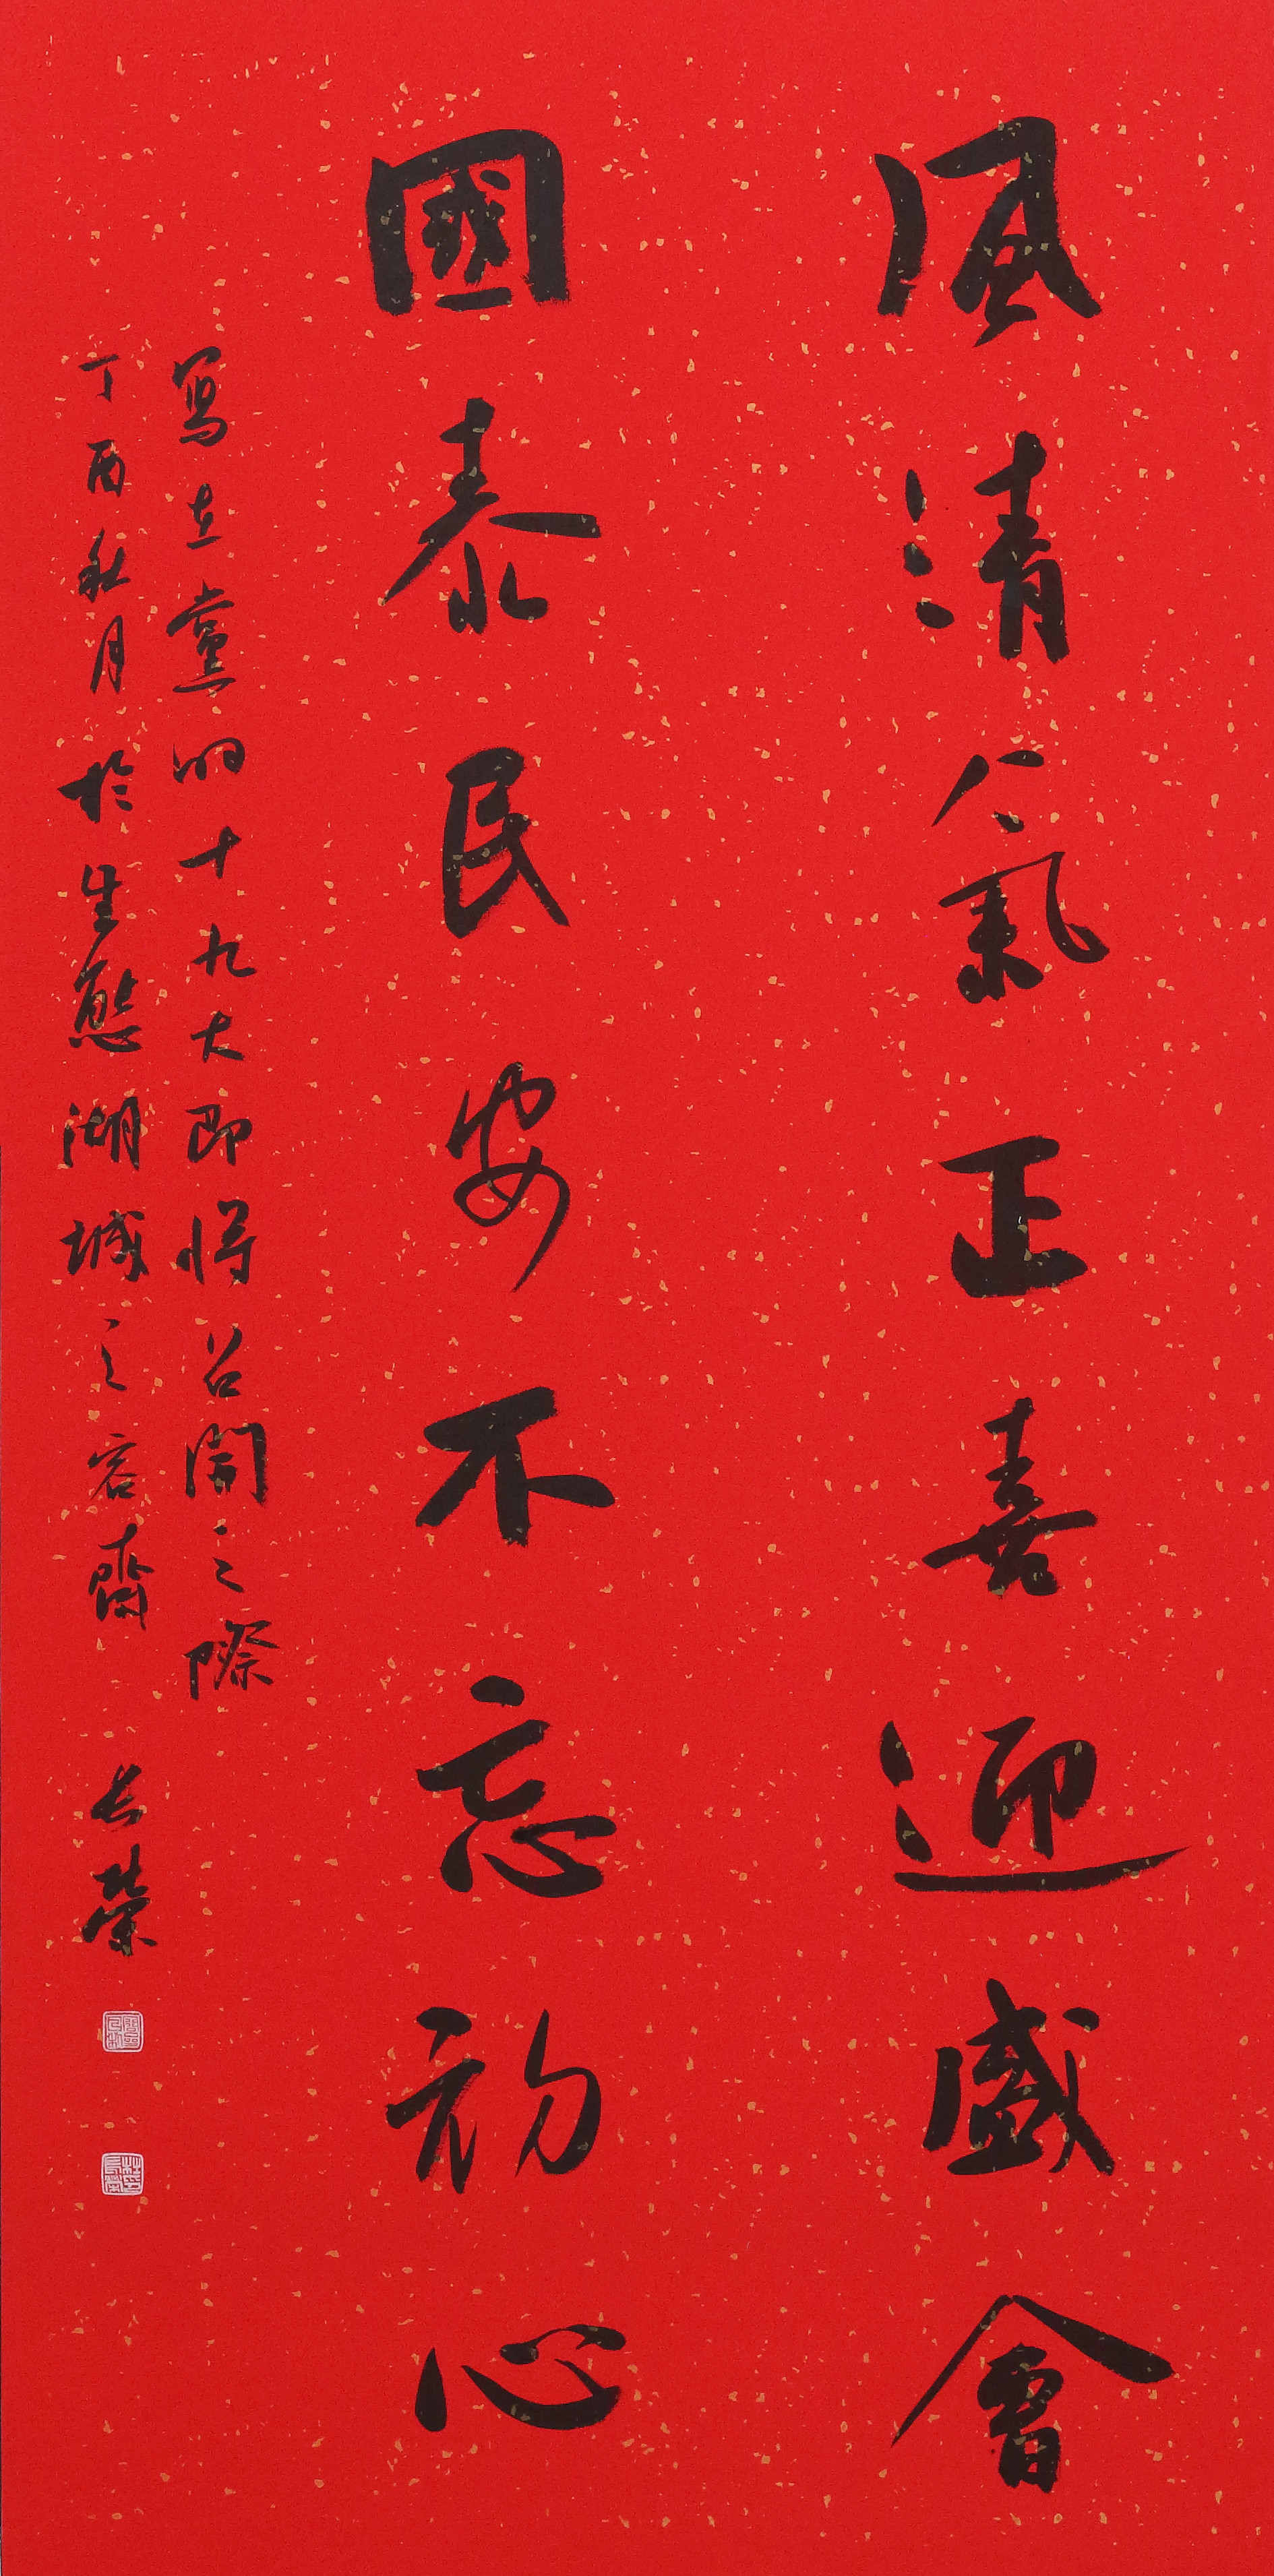 風清氣正喜迎盛會
國泰民安不忘初心
寫在黨的十九大即將召開之際
丁酉秋月於生態湖城之容齋 長榮